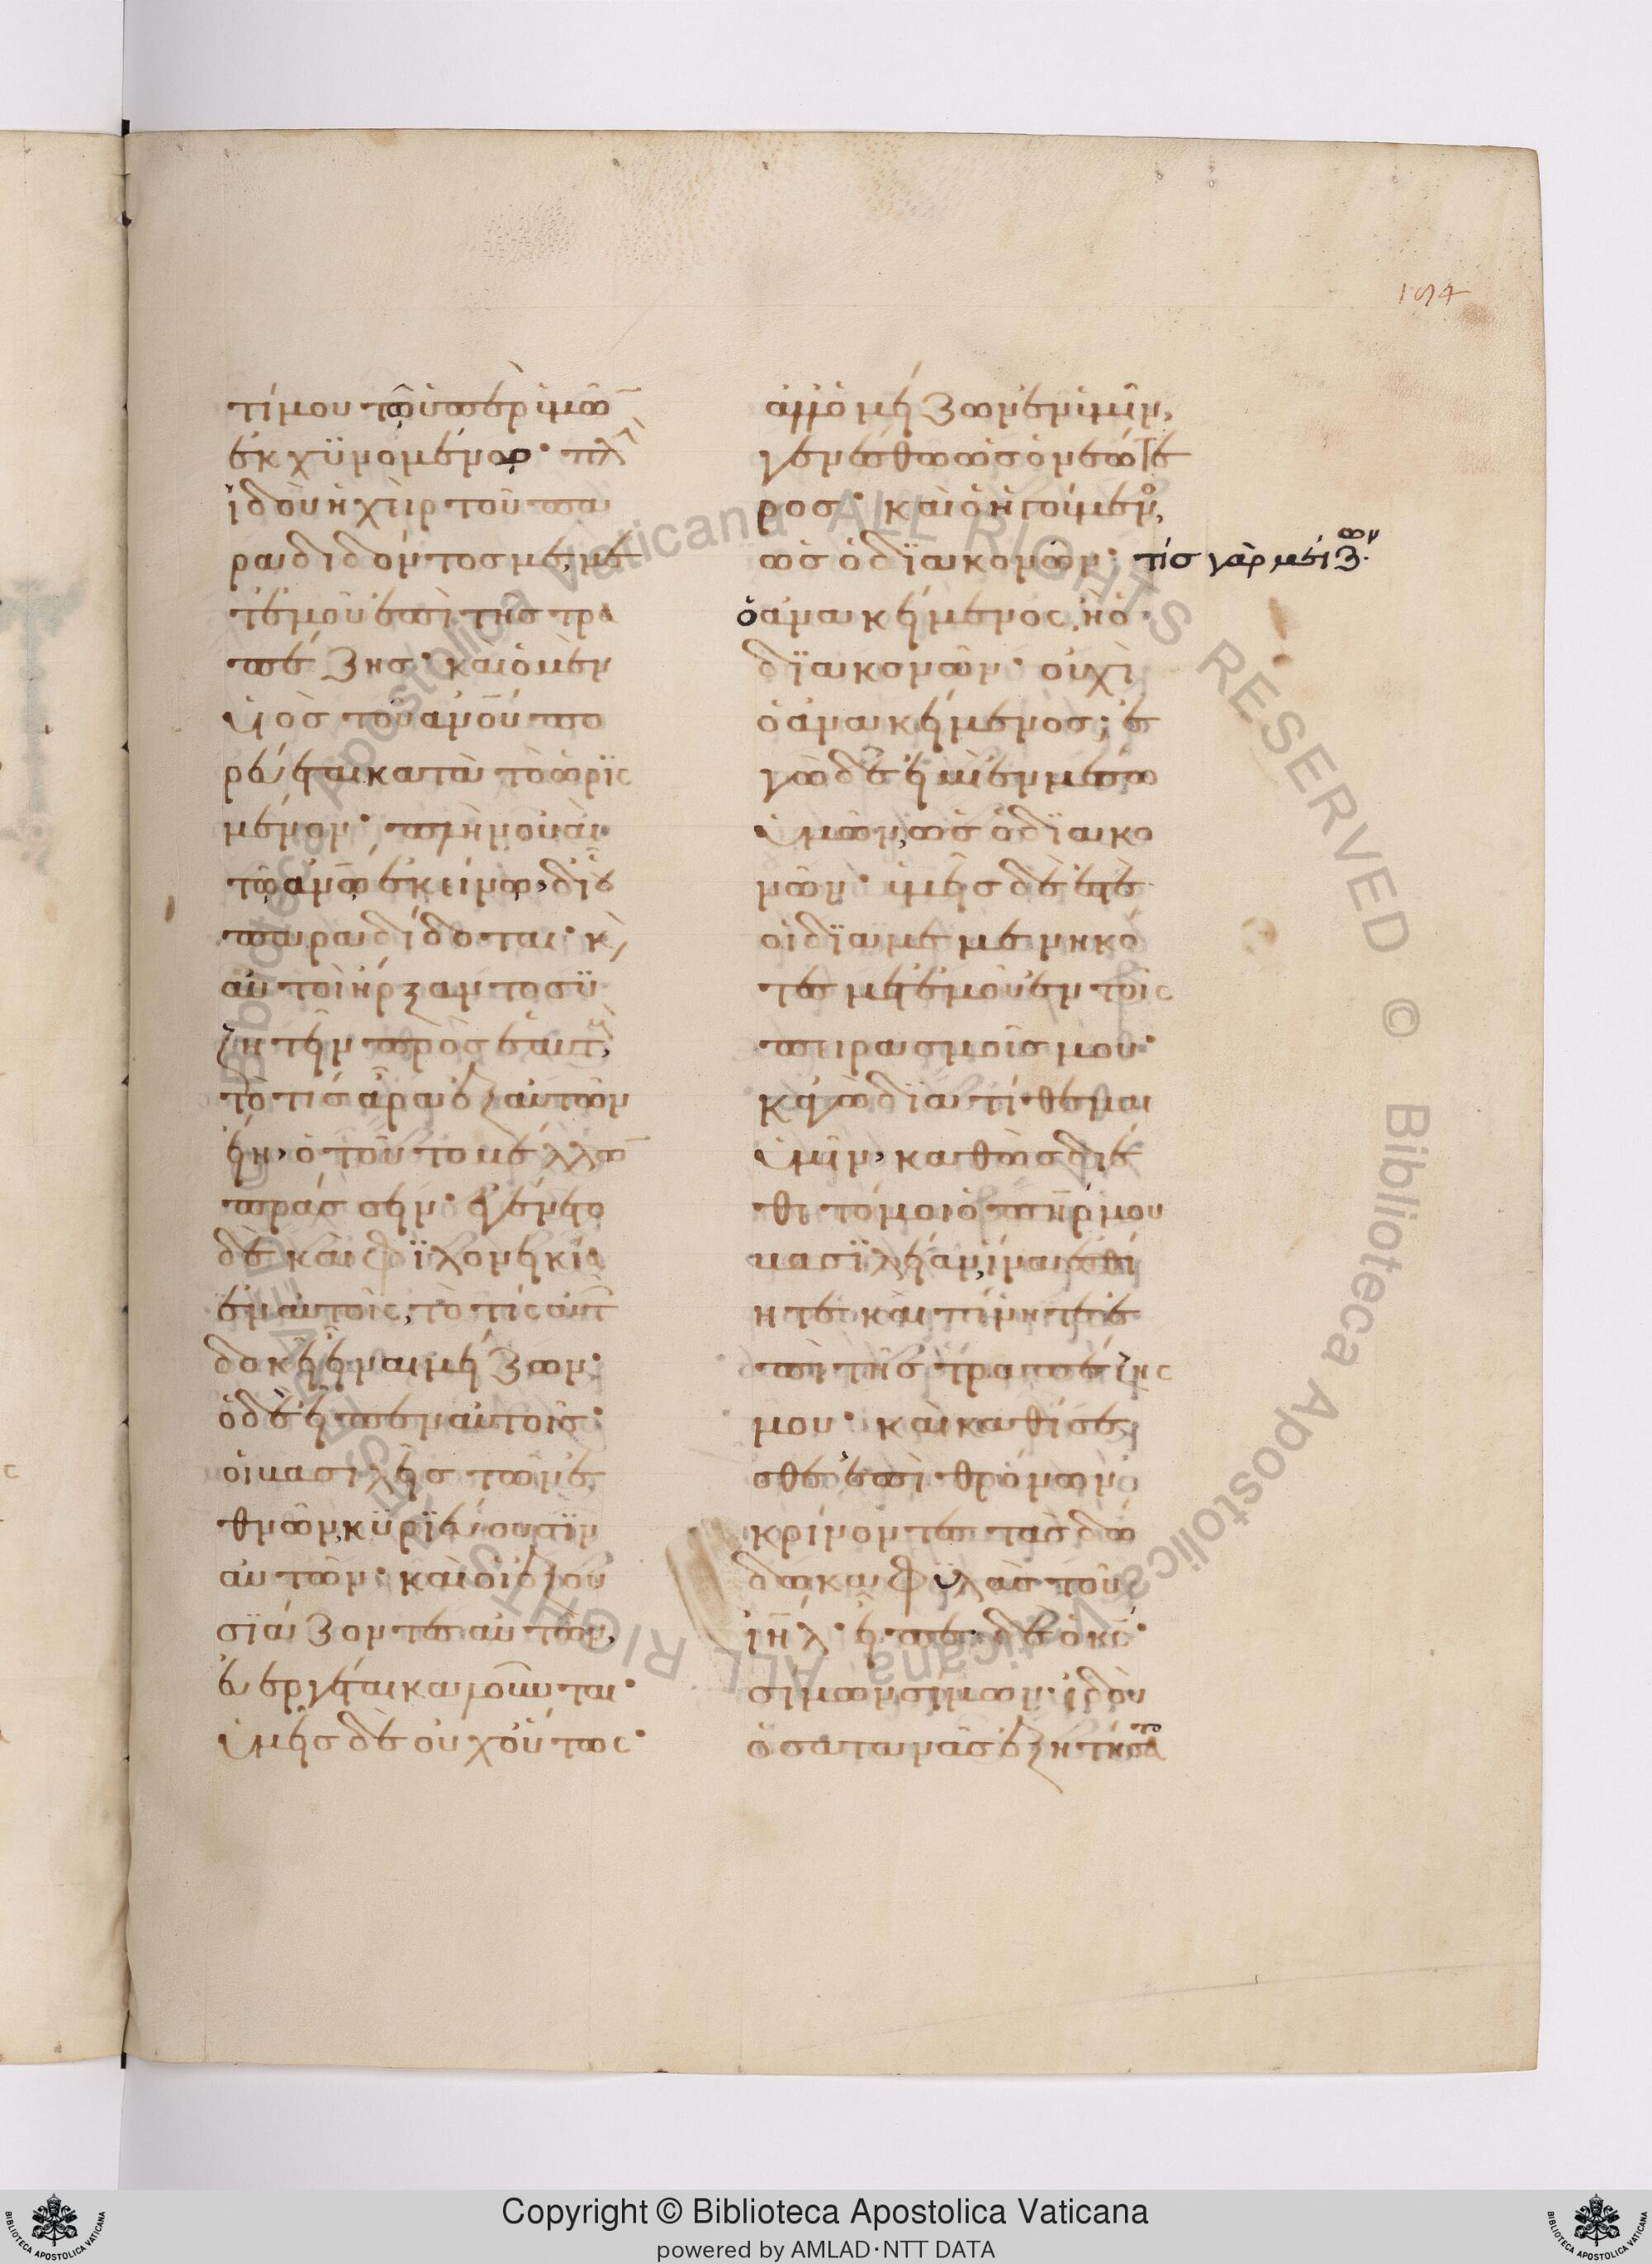 194
τίμου τῶ ὑπὲρ ὑμῶ
ἐκχϋνόμενον· πλὴ
ἰδοὺ ἡ χεὶρ τοῦ πα
ραδιδόντοσ με, με
τἐμοῦ ἐπὶ τῆσ τρα
πέζησ· καὶ ὁ μὲν
ὑιὸσ τοῦ ἀν̅ου̅ πο
ρεύεται κατὰ τὸ ὡρϊς
μένον· πλὴν οὐαὶ
τῶ ἀν̅ω̅ ἐκείνω, δι οὗ
παραδίδοται· κ̀
αὐτοὶ ἤρξαντο συ
ζητεῖν πρὸσ ἑαυτ
τὸ τίσ ἄρα ἐξ αὐτῶν
εἴη, ὁ τοῦτο μέλλω̅
πράσσειν· ἐγένετο
δὲ καὶ φϊλονεικία
ἐν αὐτοῖς, τὸ τίς αὐτ
δοκεῖ εἶναι μείζων·
ὁ δὲ εἶπεν αὐτοῖσ·
οἱ βασιλεῖσ τῶν ἐ
θνῶν, κϋρϊεύουσϊν
αὐτῶν· καὶ οἱ ἐξου
σϊάζοντεσ αὐτῶν,
εὐεργέται καλοῦνται·
ὑμεῖσ δὲ οὐχ οὕτως·
ἀλλ ὁ μείζων ἐν ὑμῖν,
γενέσθω ὡσ ὁ νεώτε
ροσ· καὶ ὁ ἡγούμενο,
ὡσ ὁ δϊακονῶν· τίσ γὰρ μείζων·
ὁ ἀνακείμενος, ἢ ὁ
δϊακονῶν· οὐχὶ
ὁ ἀνακείμενοσ; ἐ
γὼ δὲ εἰμὶ ἐν μέσω
ὑμῶν, ὡσ ὁ δϊακο
νῶν· ὑμεῖσ δέ ἐστε
οἱ δϊαμεμενηκό
τεσ μετ ἐμοῦ ἐν τοῖς
πειρασμοῖσ μου·
κἀγὼ δϊατίθεμαι
ὑμῖν, καθὼσ διέ
θετό μοι ὁ πη̅ρ μου
βασϊλείαν, ἵνα ἐσθί
ητε καὶ πίνητε ἐ
πὶ τῆσ τραπέζης
μου· καὶ καθίσε
σθε ἐπὶ θρόνων
κρίνοντεσ τὰσ δώ
δεκα φϋλὰσ τοῦ
ιη̅λ· εἶπε δὲ ὁ κς̅·
σίμων σίμων· ἰδοὺ
ὁ σατανᾶσ ἐξητήσατο
Copyright © Biblioteca Apostolica Vaticana
powered by AMLAD·NTT DATA